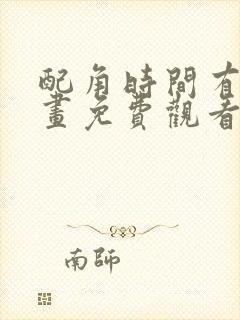 配角時間有
畫免費觀看
南師